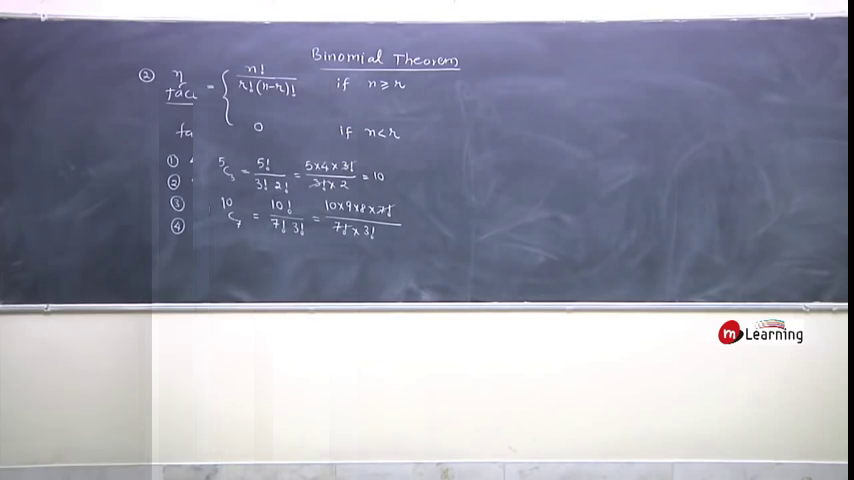 Binomial Theorem
② n = { n! / r!(n-r)! if n ≥ r
0 if n < r
①
② ⁵C₃ = 5! / 3! 2! = 5×4×3! / 3!×2 = 10
③
④ ¹⁰C₇ = 10! / 7! 3! = 10×9×8×7! / 7!×3!
m Learning